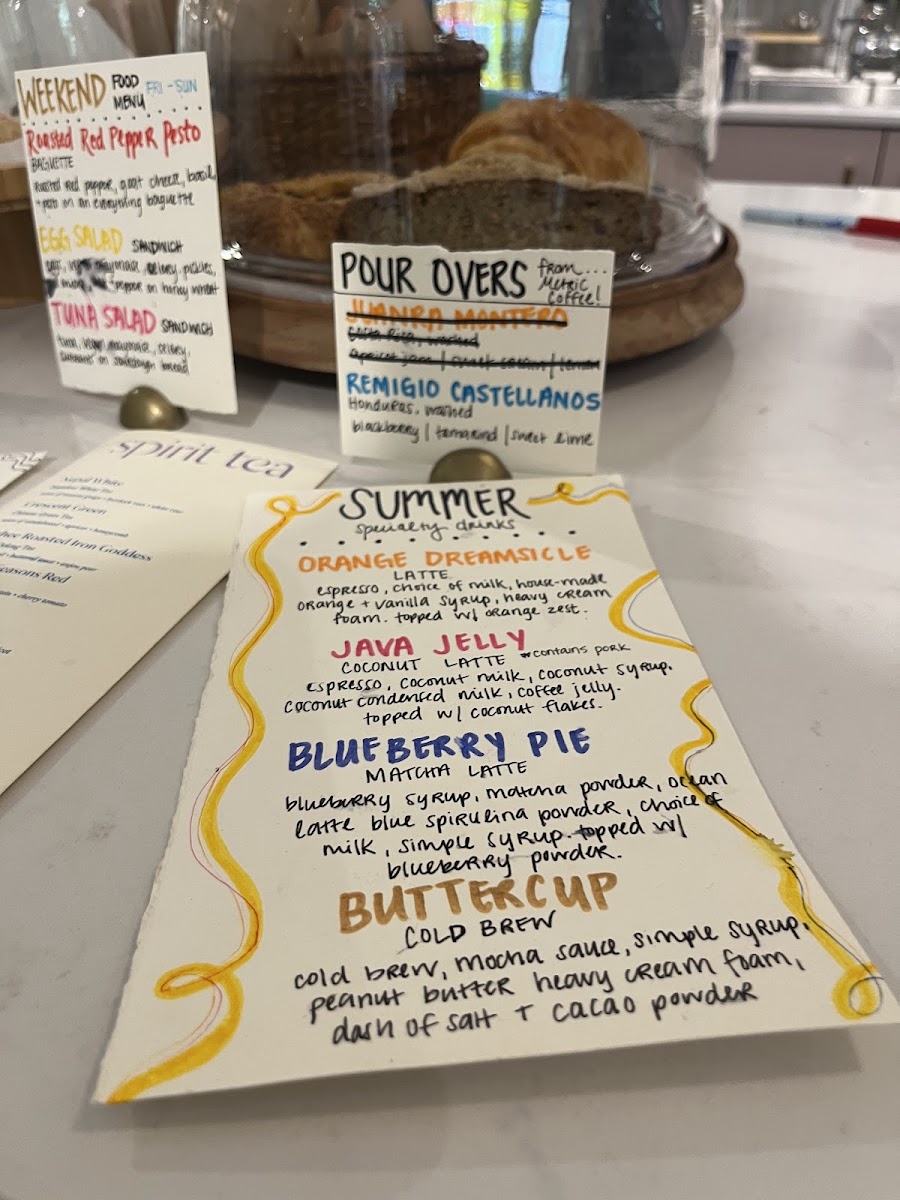 WEEKEND FOOD MENU FRI - SUN
Roasted Red Pepper Pesto
BAGUETTE
Roasted red pepper, goat cheese, basil,
+ pesto on an everything baguette
EGG SALAD SANDWICH
celery, pickles,
pepper on honey wheat
TUNA SALAD SANDWICH
tuna, vegan mayonnaise, celery,
on sourdough bread
POUR OVERS from... Metric Coffee!
JUANRA MONTERO
Costa Rica, washed
apricot jam | sweet cream |
REMIGIO CASTELLANOS
Honduras, washed
blackberry | tamarind | sweet lime
spirit tea
White
Crescent Green
Roasted Iron Goddess
Seasons Red
cherry tomato
SUMMER
specialty drinks
ORANGE DREAMSICLE
LATTE
espresso, choice of milk, house-made
orange + vanilla syrup, heavy cream
foam. topped w/ orange zest.
JAVA JELLY
COCONUT LATTE *contains pork
espresso, coconut milk, coconut syrup.
coconut condensed milk, coffee jelly.
topped w/ coconut flakes.
BLUEBERRY PIE
MATCHA LATTE
blueberry syrup, matcha powder, ocean
latte blue spirulina powder, choice of
milk, simple syrup. topped w/
blueberry powder.
BUTTERCUP
COLD BREW
cold brew, mocha sauce, simple syrup,
peanut butter heavy cream foam,
dash of salt + cacao powder